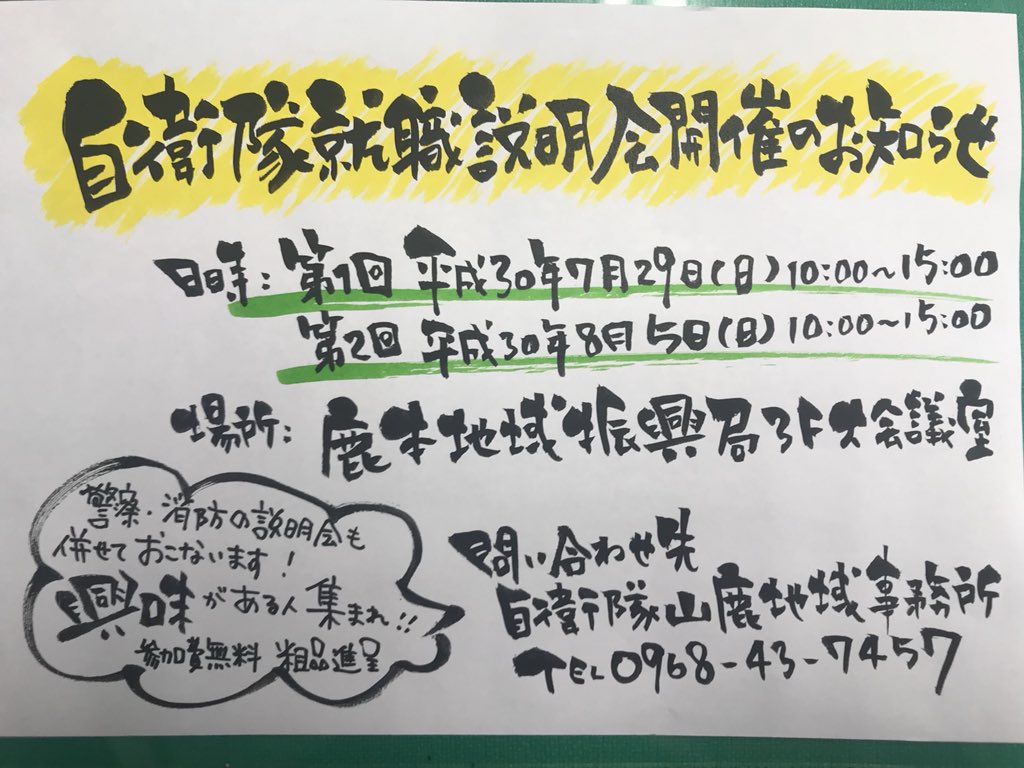 自衛隊就職説明会開催のお知らせ
日時: 第1回 平成30年7月29日(日) 10:00〜15:00
第2回 平成30年8月5日(日) 10:00〜15:00
場所: 鹿本地域振興局3F大会議室
警察・消防の説明会も
併せておこないます!
興味がある人集まれ!!
参加費無料 粗品進呈
問い合わせ先
自衛隊山鹿地域事務所
TEL0968-43-7457